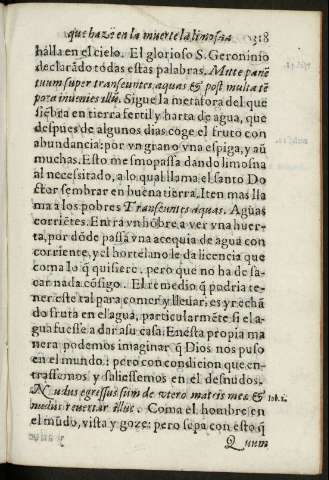 que hazẽ en la muerte la limosna 318
halla en el cielo. El glorioso S. Geronimo
declarãdo todas estas palabras. Mitte panẽ
tuum super transeuntes aquas & post multa tẽ
pora inuenies illũ. Sigue la metafora del que
siẽbra en tierra fertil y harta de agua, que
despues de algunos dias coge el fruto con
abundancia: por vn grano vna espiga, y aũ
muchas. Esto mesmo passa dando limosna
al necessitado, a lo qual llama el santo Do
ctor sembrar en buena tierra. Iten mas lla
ma a los pobres Transeuntes aquas. Aguas
corriẽtes. Entra vn hõbre a ver vna huer-
ta, por dõde passa vna acequia de agua con
corriente, y el hortelano le da licencia que
coma lo q̃ quisiere, pero que no ha de sa-
car nada cõsigo. El remedio q̃ podria te-
ner este tal para comer y lleuar, es yr echã
do fruta en el agua, particularmẽte si el a-
gua fuesse a dar a su casa. En esta propia ma
nera podemos imaginar q̃ Dios nos puso
en el mundo: pero con condicion que en-
trassemos y saliessemos en el desnudos.
Nudus egressus sum de vtero matris meæ & Iob. 1.
nudus reuertar illuc. Coma el hombre en
el mũdo, vista y goze: pero sepa con esto q̃
Quum